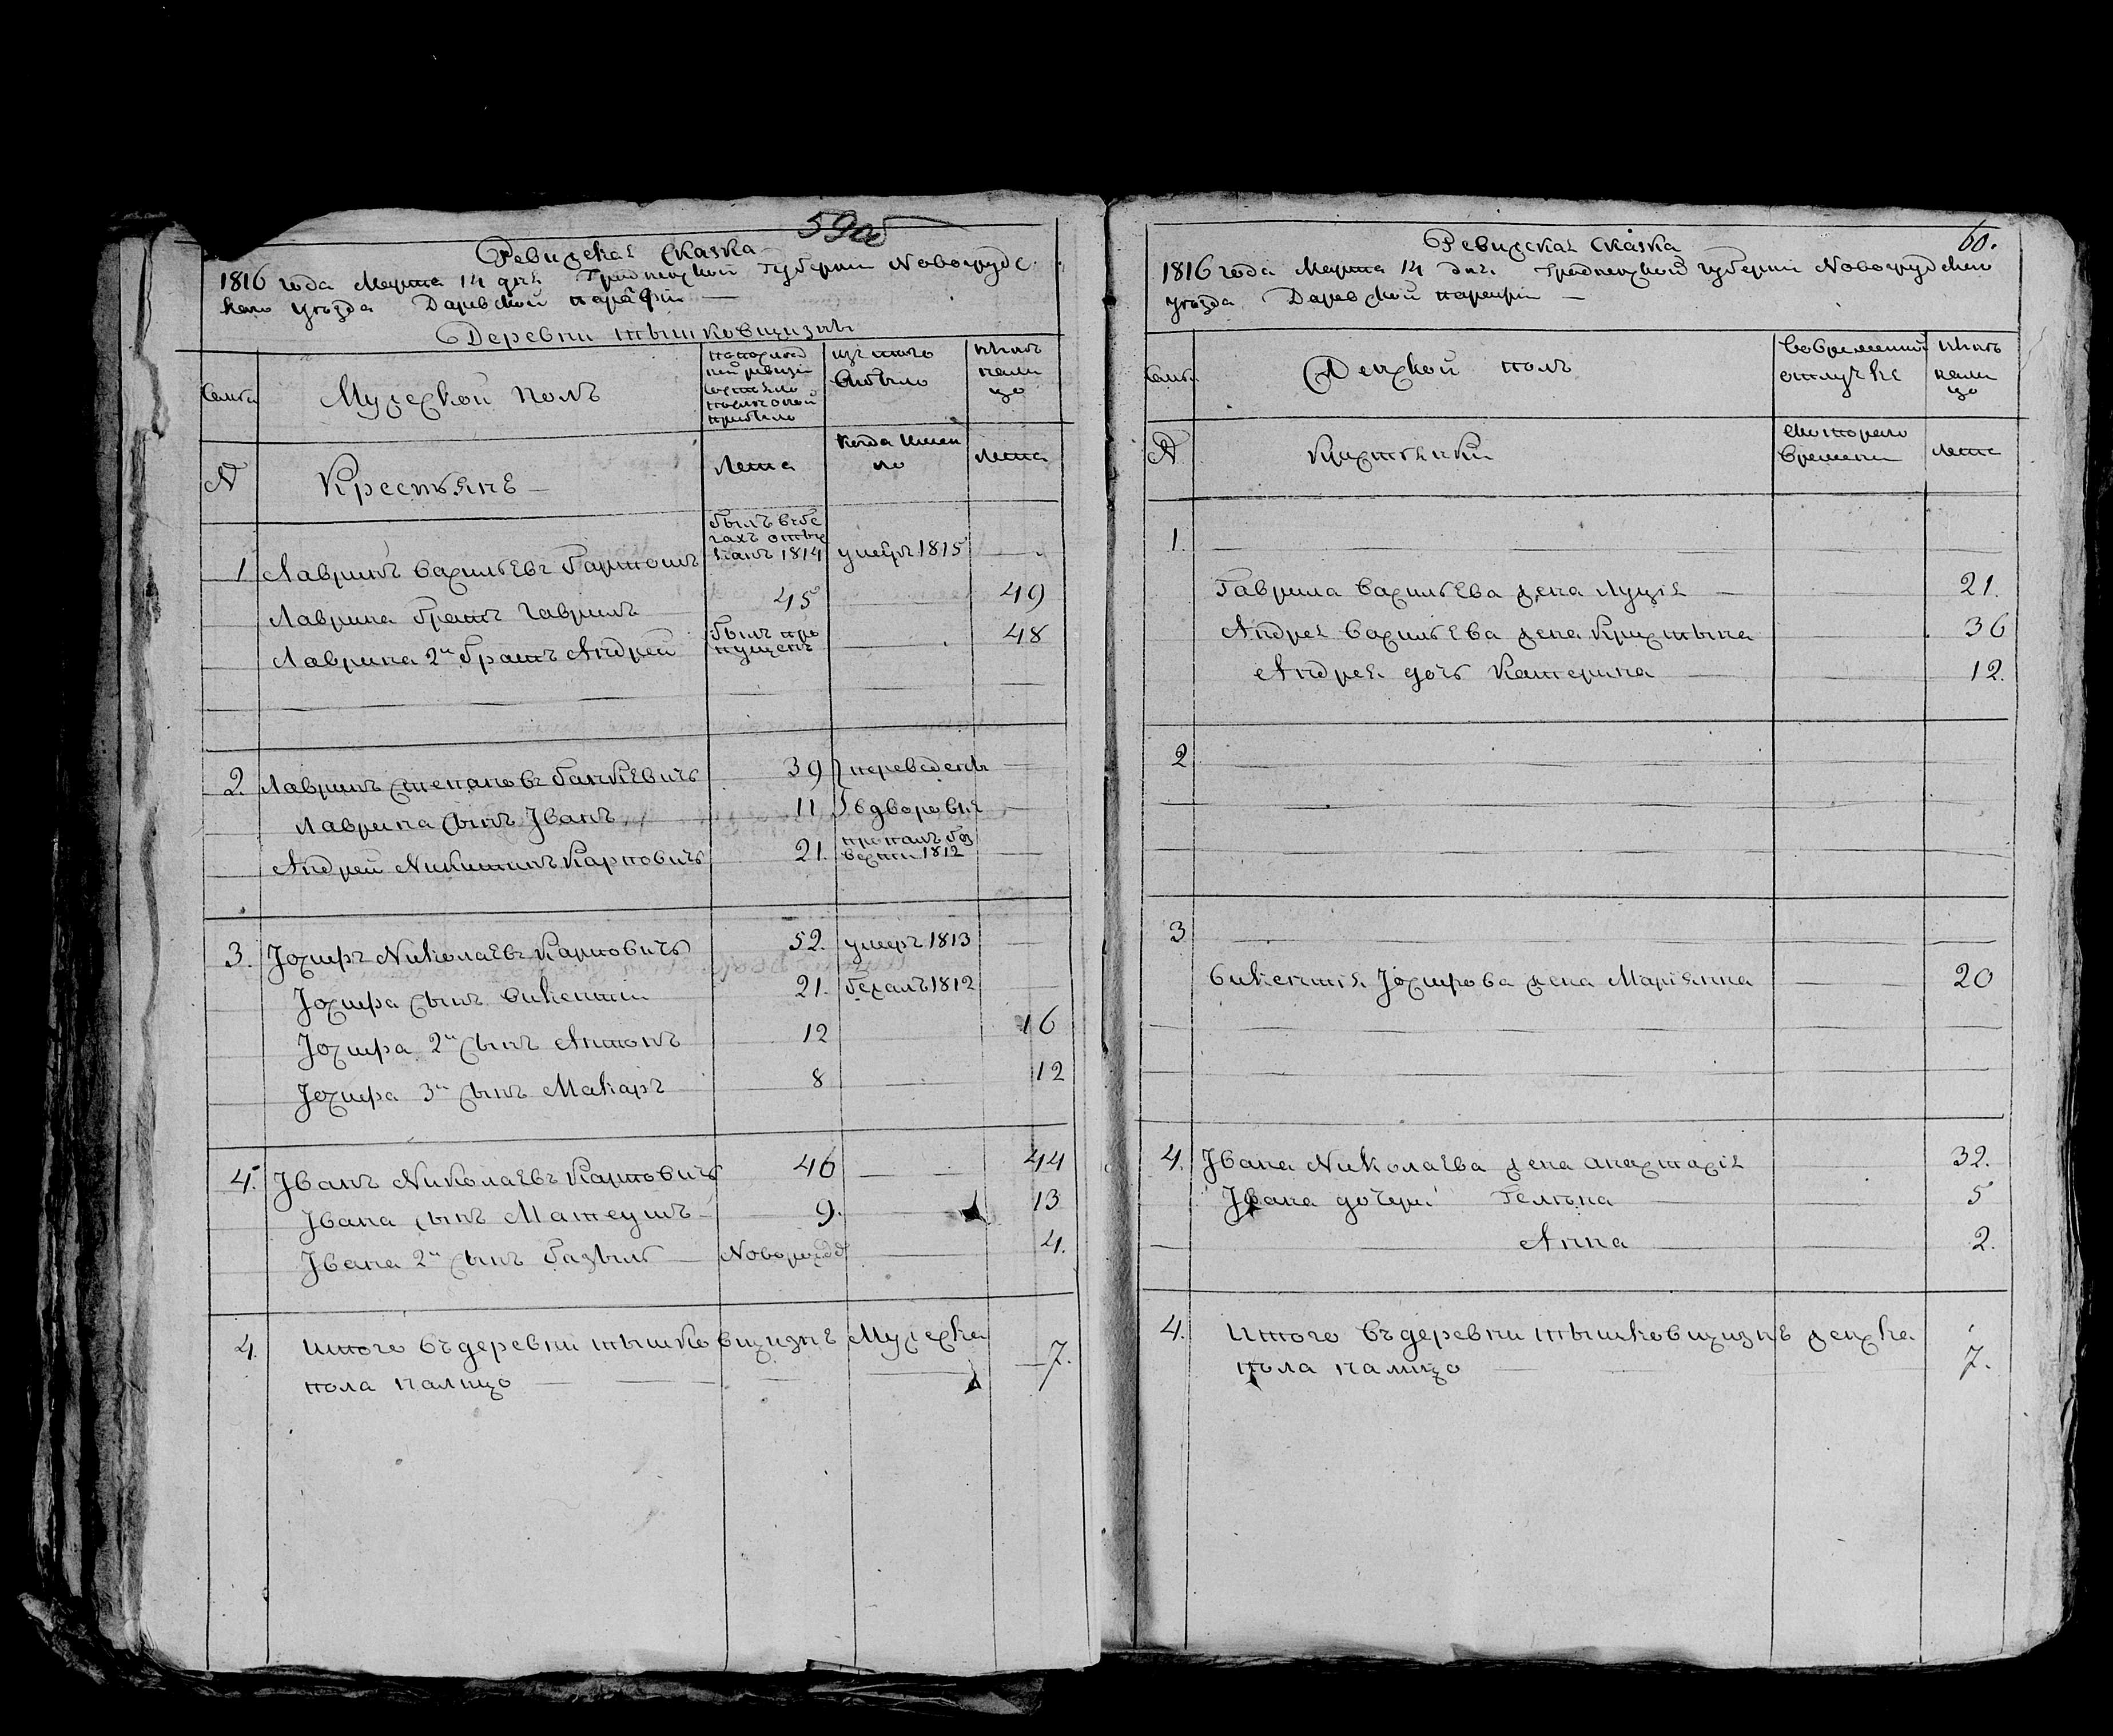 59об
Ревизская Сказка
1816 года Марта 14 дня Гродненской Губернии Новогрудс
каго уѣзда Даревской парафіи —
Деревни Тышковщизны
Семьи
Мужеской полъ
по послед
ней ревизіи
состояло
и после оной
прибыло
изъ того
выбыло
ныне
нали
цо
№
Крестьянѣ —
Лета
когда имен
но
лета
1 Лавринъ Васильевъ
былъ въ бе
гахъ отыс
канъ 1814
умеръ 1815
Лаврина братъ Гаврилъ 45 49
Лаврина 2й братъ Андрей
былъ про
пущенъ
48
2. Лавринъ Степановъ 39 переведены
Лаврина сынъ Іванъ 11
Андрей Никитинъ Карповичъ 21.
пропалъ без
вести 1812
3. Іозифъ Николаевъ Карповичъ 52. умеръ 1813
Іозифа сынъ Викентіи 21. бежалъ 1812
Іозифа 2й сынъ Антонъ 12 16
Іозифа 3й сынъ Макаръ 8 12
4. Іванъ Николаевъ Карповичъ 46 44
Івана сынъ Матеушъ 9. 13
Івана 2й сынъ Базыль Новорожд 4.
4. Итого въ деревни Тышковщизнѣ Мужска
пола налицо 7.
60.
Ревизская Сказка
1816 года Марта 14 дня Гродненской губерніи Новогрудскаго
уѣзда Даревской парафіи —
Семьи
Женской полъ
во временной
отлучке
ныне
нали
цо
№
Крестянки
с котораго
времени
лета
1.
Гаврила Васильева жена Луція 21.
Андрея Васильева жена Кристына 36
Андрея дочь Катерина 12.
2
3
Викентія Іозифова жена Маріянна 20
4. Івана Николаева жена Анастасія 32.
Івана дочери Гелѣна 5
Анна 2.
4. Итого въ деревни Тышковщизнѣ женска
пола налицо 7.